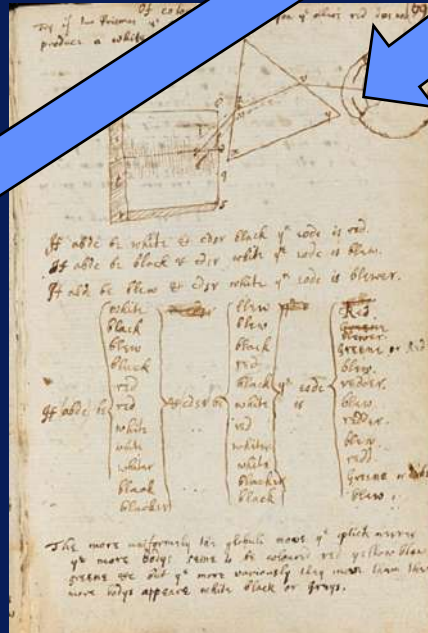 Of colo
Try if two Prismes yᵉ
on yᵉ others red doe not
produce a white
If abdc be white & cdsr black yⁿ eodc is red.
If abdc be black & cdsr white yⁿ eodc is blew.
If abdc be blew & cdsr white yⁿ eodc is blewer.
white
black
blew
black
red
red
white
white
whiter
black
blacker
If abdc be
& cdsr be
blew
blew
black
red
black
white
red
whiter
white
blacker
black
yⁿ eodc is
Red
Greene
blewer
Greene or Red
blew
redder
blew
redder
blew
red
Greene or
blew
The more uniformly the globuli move yᵉ optick nerves
yᵉ more bodys seme to be coloured red yellow blew
greene &c but yᵉ more variously they move them the
more bodys appeare white black or Greys.